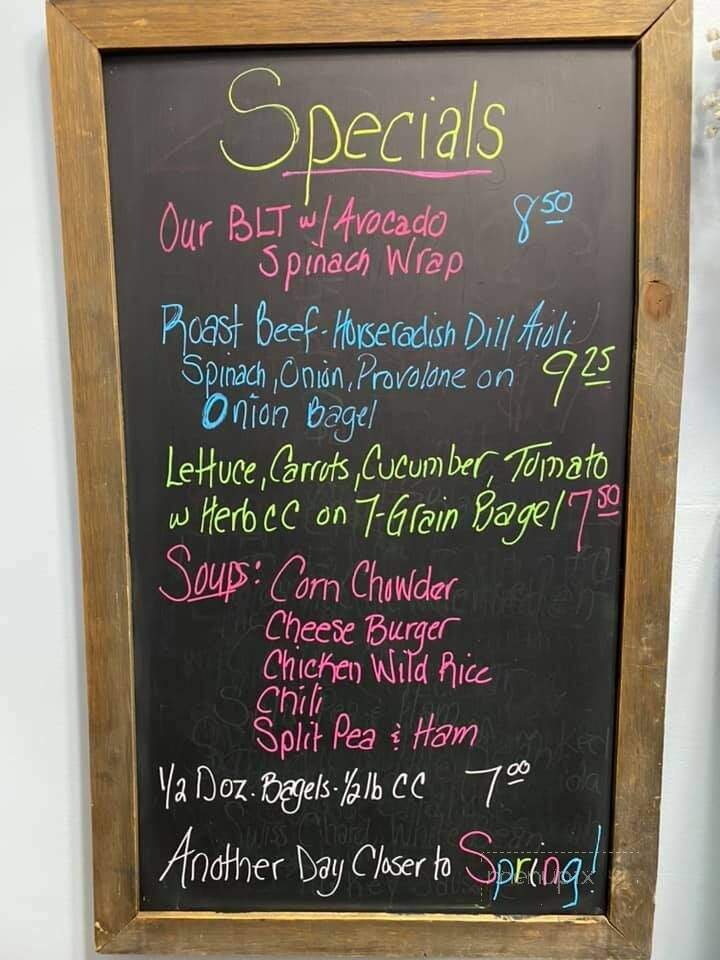 Specials
Our BLT w/ Avocado 8 50
Spinach Wrap
Roast Beef - Horseradish Dill Aioli
Spinach, Onion, Provolone on 9 25
Onion Bagel
Lettuce, Carrots, Cucumber, Tomato
w Herb CC on 7-Grain Bagel 7 50
Soups: Corn Chowder
Cheese Burger
Chicken Wild Rice
Chili
Split Pea & Ham
1/2 Doz. Bagels - 1/2 lb CC 7 00
Another Day Closer to Spring!
menupix